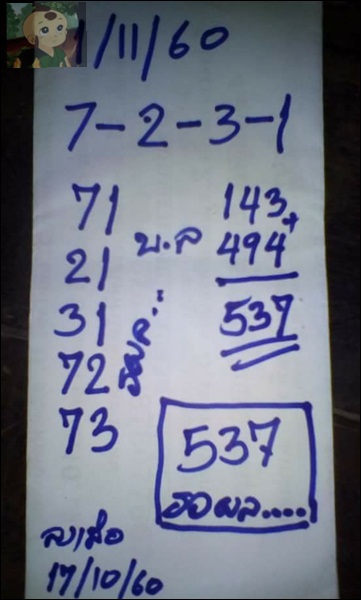 1/11/60
7-2-3-1
71
21
31
72
73
บ.ล
143
+
494
537
537
รอผล....
17/10/60